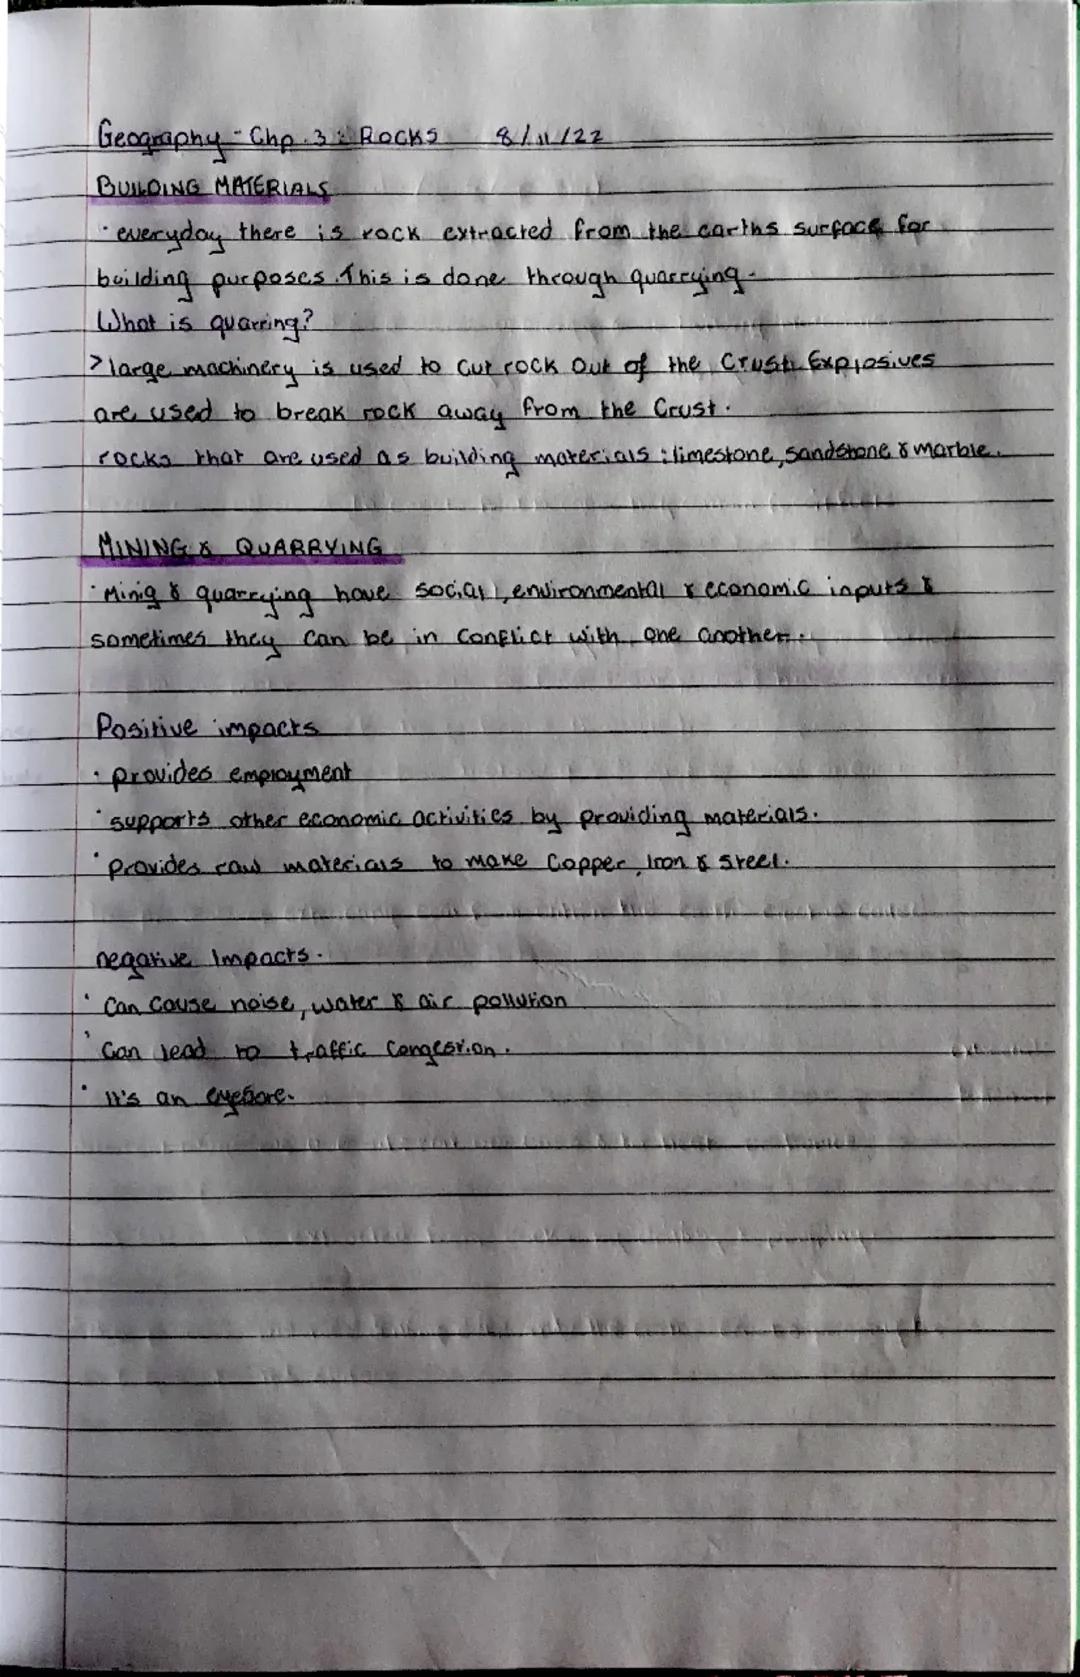 Geography - Chp. 3 : Rocks 8/11/22
BUILDING MATERIALS
· everyday there is rock extracted from the earths surface for
building purposes. This is done through quarrying.
What is quarring?
> large machinery is used to cut rock out of the Crust. Explosives
are used to break rock away from the Crust.
rocks that are used as building materials : limestone, sandstone & marble.
MINING & QUARRYING
· Minig & quarrying have social, environmental & economic inputs &
sometimes they can be in conflict with one another.
Positive impacts
· provides employment
· supports other economic activities by providing materials.
· provides raw materials to make Copper, Iron & steel.
negative Impacts.
· Can Cause noise, water & air pollution
· Can lead to traffic Congestion.
· It's an eyesore.